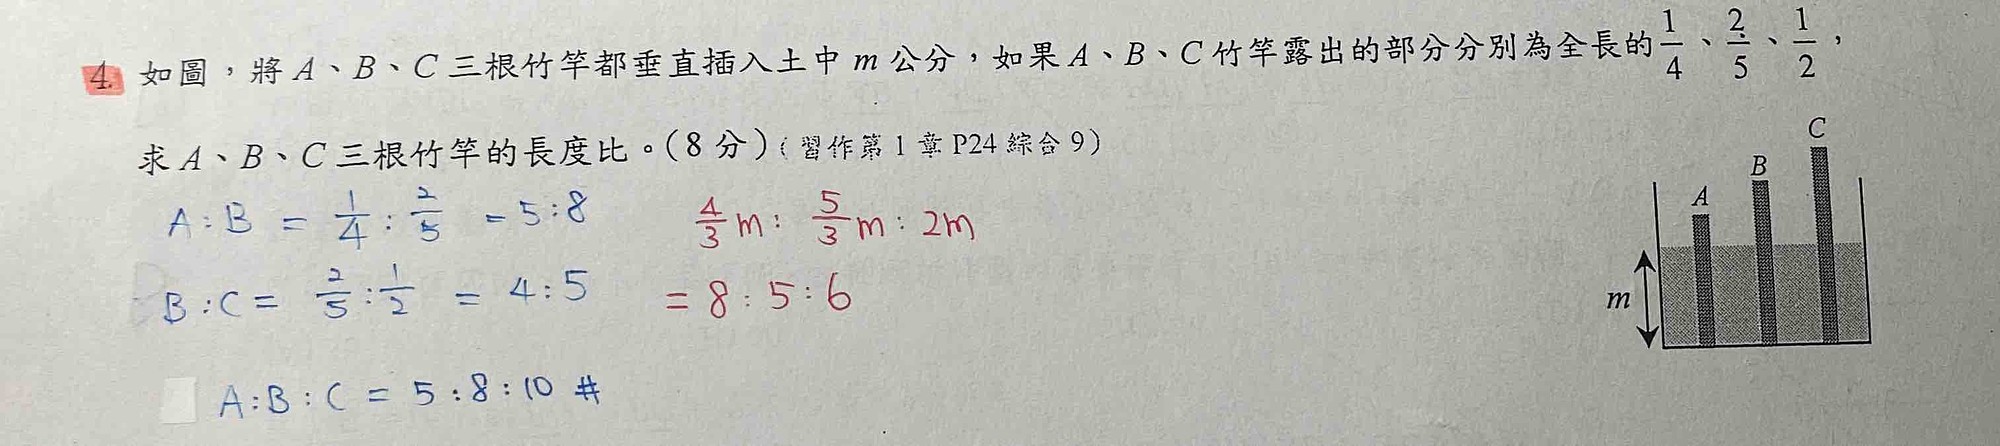 4. 如圖，將 A、B、C 三根竹竿都垂直插入土中 m 公分，如果 A、B、C 竹竿露出的部分分別為全長的 1/4、2/5、1/2，
求 A、B、C 三根竹竿的長度比。(8 分) (習作第 1 章 P24 綜合 9)
A:B = 1/4 : 2/5 = 5:8
4/3 m : 5/3 m : 2m
B:C = 2/5 : 1/2 = 4:5
= 8:5:6
A:B:C = 5:8:10 #
A
B
C
m